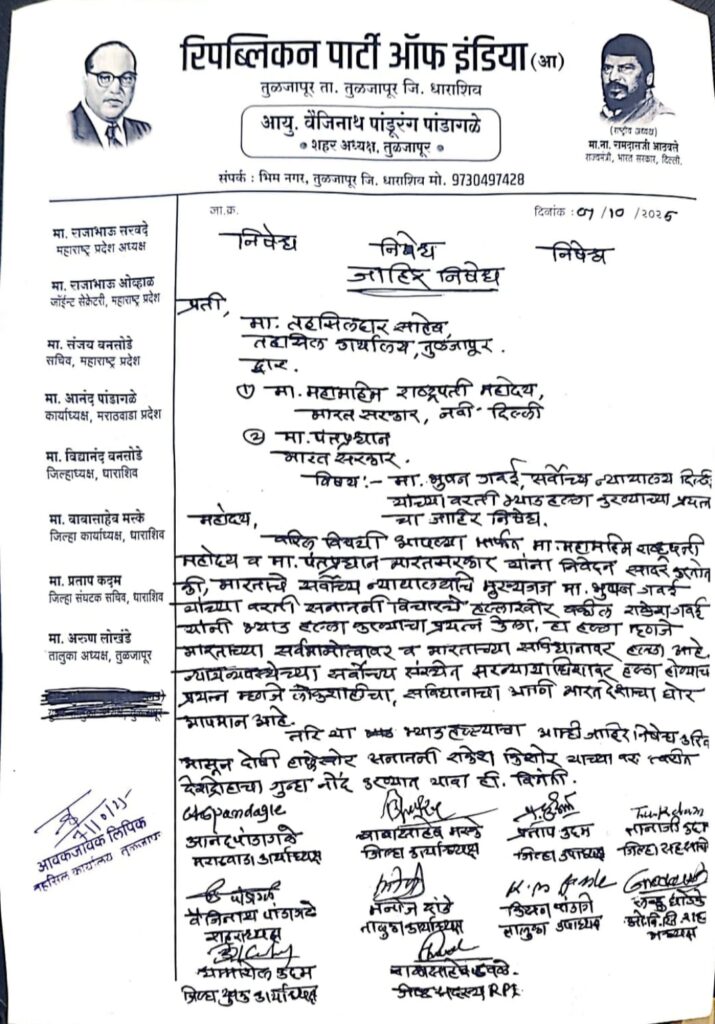 रिपब्लिकन पार्टी ऑफ इंडिया (आ)
तुळजापूर ता. तुळजापूर जि. धाराशिव
आयु. वैजिनाथ पांडूरंग पांडागळे
• शहर अध्यक्ष, तुळजापूर •
(राष्ट्रीय अध्यक्ष)
मा.ना. रामदासजी आठवले
राज्यमंत्री, भारत सरकार, दिल्ली.
संपर्क : भिम नगर, तुळजापूर जि. धाराशिव मो. 9730497428
जा.क्र.
दिनांक : 07/10/2025
मा. राजाभाऊ सरवदे
महाराष्ट्र प्रदेश अध्यक्ष
मा. राजाभाऊ ओव्हाळ
जॉईन्ट सेक्रेटरी, महाराष्ट्र प्रदेश
मा. संजय बनसोडे
सचिव, महाराष्ट्र प्रदेश
मा. आनंद पांडागळे
कार्याध्यक्ष, मराठवाडा प्रदेश
मा. विद्यानंद बनसोडे
जिल्हाध्यक्ष, धाराशिव
मा. बाबासाहेब मस्के
जिल्हा कार्याध्यक्ष, धाराशिव
मा. प्रताप कदम
जिल्हा संघटक सचिव, धाराशिव
मा. अरुण लोखंडे
तालुका अध्यक्ष, तुळजापूर
निषेध निषेध निषेध
जाहिर निषेध
प्रती,
मा. तहसिलदार साहेब,
तहसिल कार्यालय, तुळजापूर.
द्वारा.
① मा. महामहिम राष्ट्रपती महोदय,
भारत सरकार, नवी दिल्ली
② मा. पंतप्रधान
भारत सरकार.
विषय:- मा. भुषन गवई, सर्वोच्च न्यायालय दिल्ली
यांच्या वरती भ्याड हल्ला करण्याच्या प्रयत्न
चा जाहिर निषेध.
महोदय,
वरिल विषयी आपल्या मार्फत मा. महामहिम राष्ट्रपती
महोदय व मा. पंतप्रधान भारत सरकार यांना निवेदन सादर करतो
की, भारताचे सर्वोच्च न्यायालयाचे मुख्यजज मा. भुषण गवई
यांच्या वरती सनातनी विचारचे हल्लाखोर वकील राकेश गवई
यांनी भ्याड हल्ला करण्याचा प्रयत्न केला. हा हल्ला म्हणजे
भारताच्या व भारताच्या संविधानावर हल्ला आहे.
न्यायव्यवस्थेच्या सर्वोच्च संस्थेत सरन्यायाधिशावर हल्ला होण्याच
प्रयत्न म्हणजे लोकशाहीचा, संविधानाचा आणि भारत देशाचा घोर
आपमान आहे.
तरि या भ्याड हल्ल्याचा आम्ही जाहिर निषेध करित
आसून दोषी हल्लेखोर सनातनी राकेश किशोर याच्या वर त्वरीत
देशद्रोहाचा गुन्हा नोंद करण्यात यावा ही. विनंती.
आनंद पांडागळे
मराठवाडा कार्याध्यक्ष
बाबासाहेब मस्के
जिल्हा कार्याध्यक्ष
प्रताप कदम
जिल्हा उपाध्यक्ष
तानाजी कदम
वैजिनाथ पांडागळे
शहराध्यक्ष
तालुका कार्याध्यक्ष
तालुका उपाध्यक्ष
कदम
जिल्हा युवक कार्याध्यक्ष
जिल्हा सदस्य RPI
7/10/25
आवकजावक लिपिक
तहसिल कार्यालय तुळजापूर